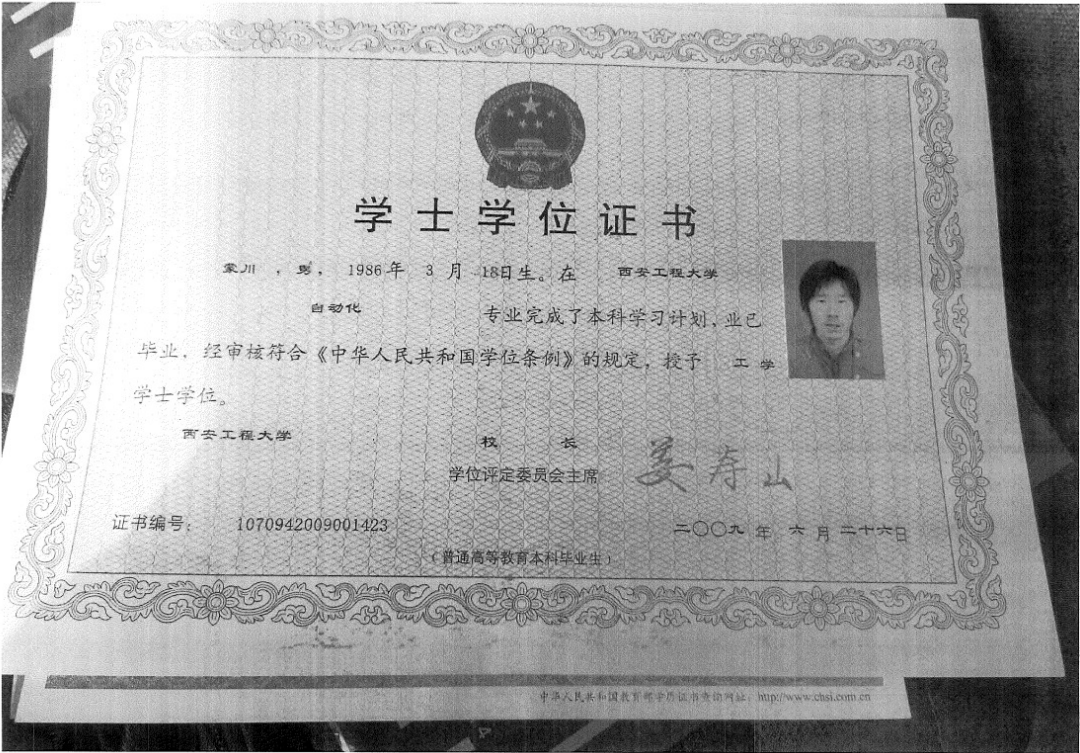 学士学位证书
蒙川,男,1986年3月18日生。在 西安工程大学
自动化 专业完成了本科学习计划,业已
毕业,经审核符合《中华人民共和国学位条例》的规定,授予 工学
学士学位。
西安工程大学
校长
学位评定委员会主席
姜寿山
证书编号: 1070942009001423
二〇〇九年 六月二十六日
(普通高等教育本科毕业生)
中华人民共和国教育部学历证书查询网址:http://www.chsi.com.cn